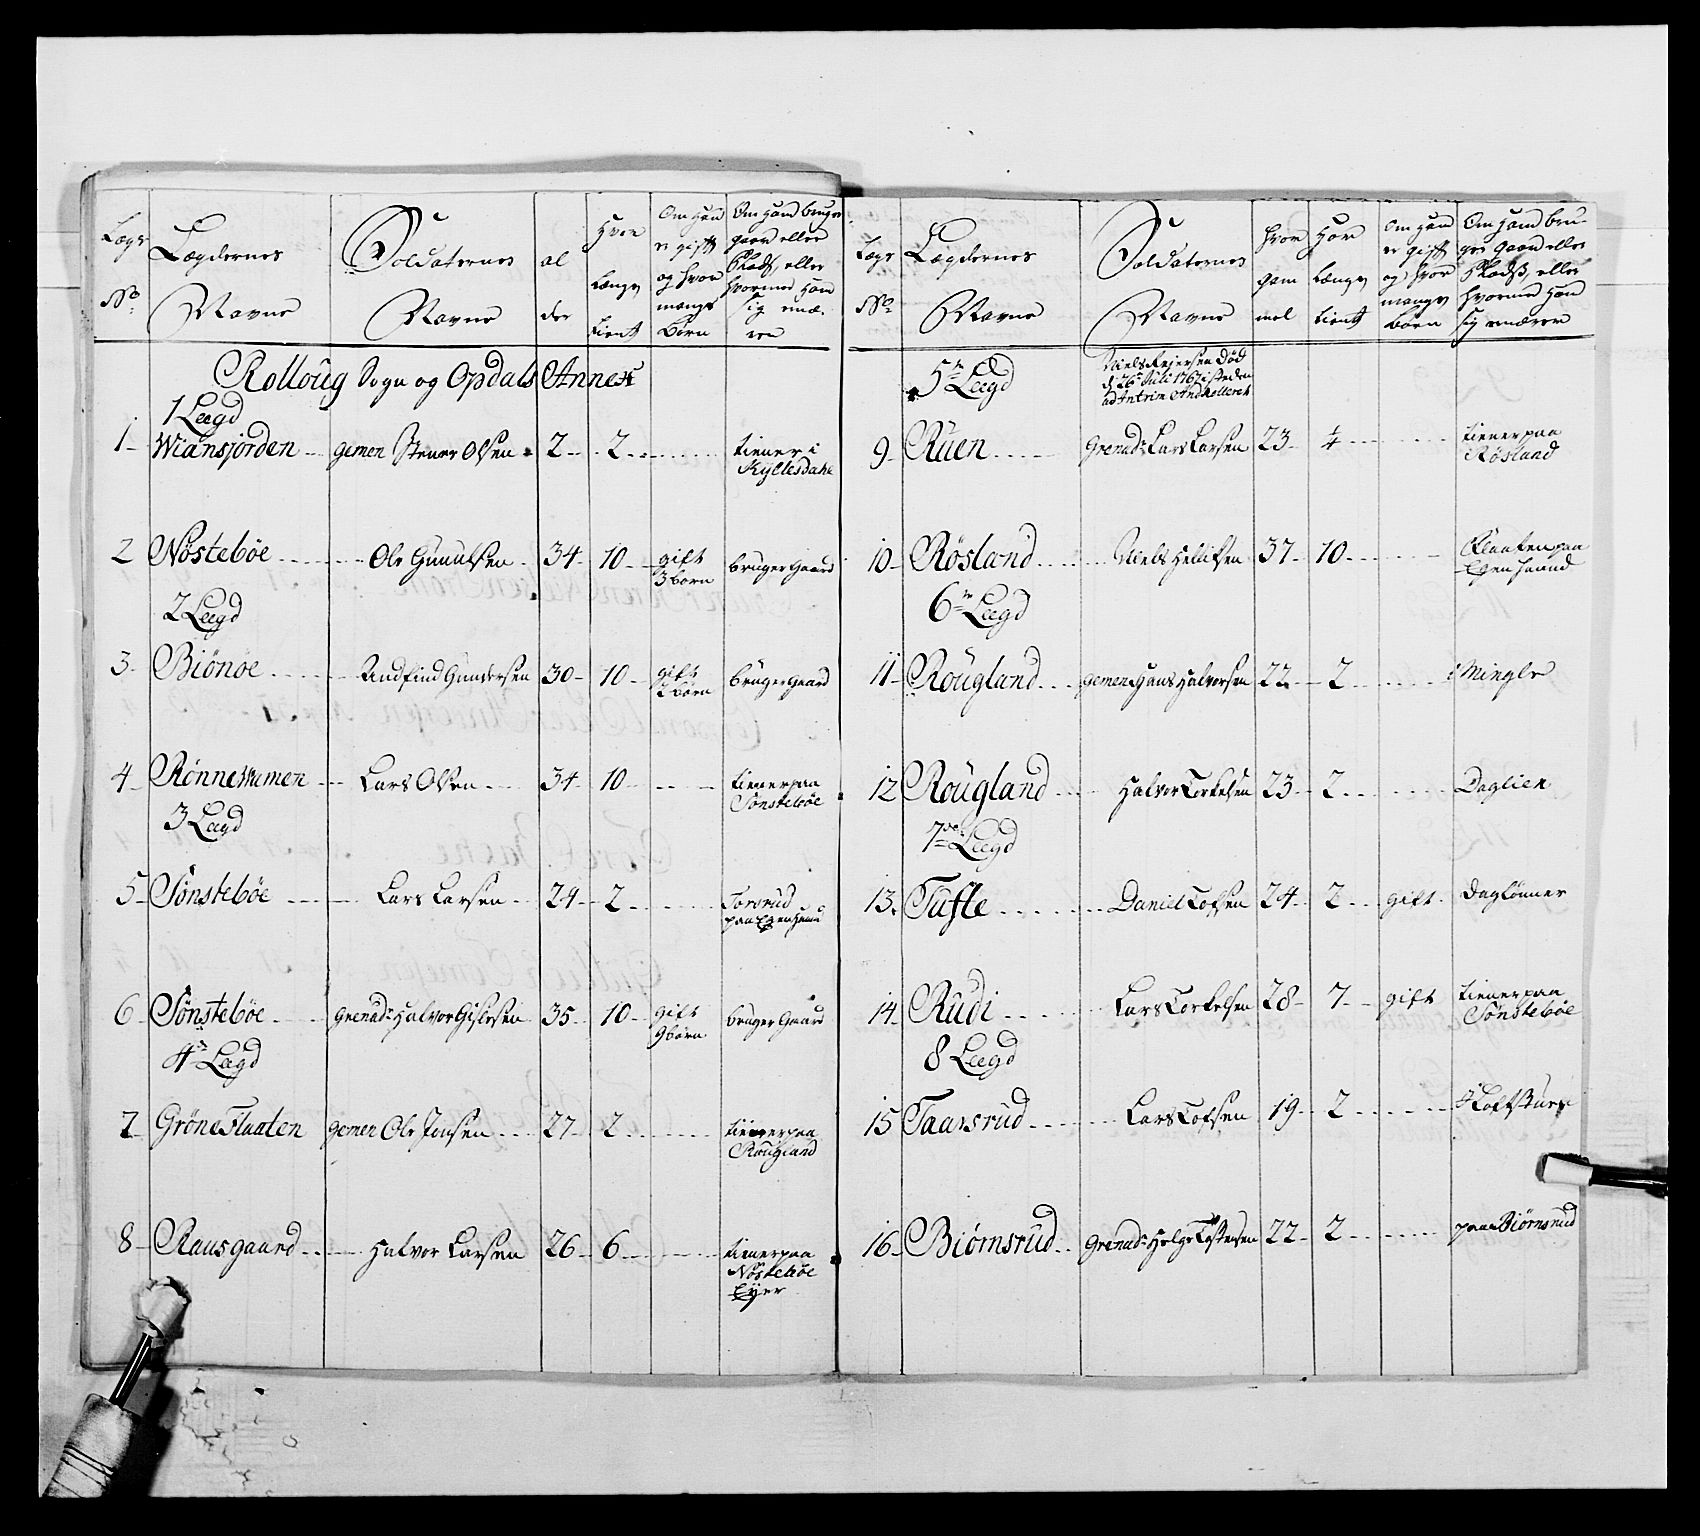 Lægs No | Lægdernes Navne | Soldaternes Navne | al der | Hvor længe tient | Om han er gift og hvor mange Børn | Om Hand bruger gaard eller Plads, eller hvormed han sig enæ- rer
Rolloug Sogn og Opdals Annex
1 Lægd
1 Wiansjorden gemen Stener Olsen 2 2 tiener i
2 Nøsteböe Ole Gunulsen 34 10 gift 3 børn bruger Gaard
2 Lægd
3 Biönöe Andfind Gundersen 30 10 gift 2 børn bruger Gaard
4 Lars Olsen 34 10 tiener paa Sønsteböe
3 Lægd
5 Sønsteböe Lars Larsen 24 2 Torsrud paa Egen Haand
6 Sønsteböe Grenad: Halvor Gislesen 35 10 gift 9 børn bruger Gaard
4de Lægd
7 Grönneflaaten gemen Ole Jonsen 27 2 tiener paa Rougland
8 Rausgaard Halvor Larsen 26 6 tiener paa Nøsteböe Eyer
Lægs No | Lægdernes Navne | Soldaternes Navne | hvor gam mel | Hvor længe tient | Om Han er gift og hvor mange børn | Om Hand bru- ger gaard eller Plads, eller hvormed Han sig ernærer
5te Lægd
Niels Reiersen Död
d: 26de Juli 1767 isteden
9 Ruen Grenad: Lars Larsen 23 1/4 tiener paa Røsland
10 Røsland Niels 37 10 Flaaten paa Egen Haand
6te Lægd
11 Rougland gemen Hans Halvorsen 22 2 i Mingle
12 Rougland Halvor Torkelsen 23 2 Daglien
7de Lægd
13 Tufte Daniel Tofsen 24 2 gift Daglønner
14 Rudi Lars Torkelsen 28 7 gift tiener paa Sønsteböe
8 Lægd
15 Taarsrud Lars Tofsen 19 2
16 Biørnsrud Grenad: Helge Tostensen 22 2 paa Biørnsrud